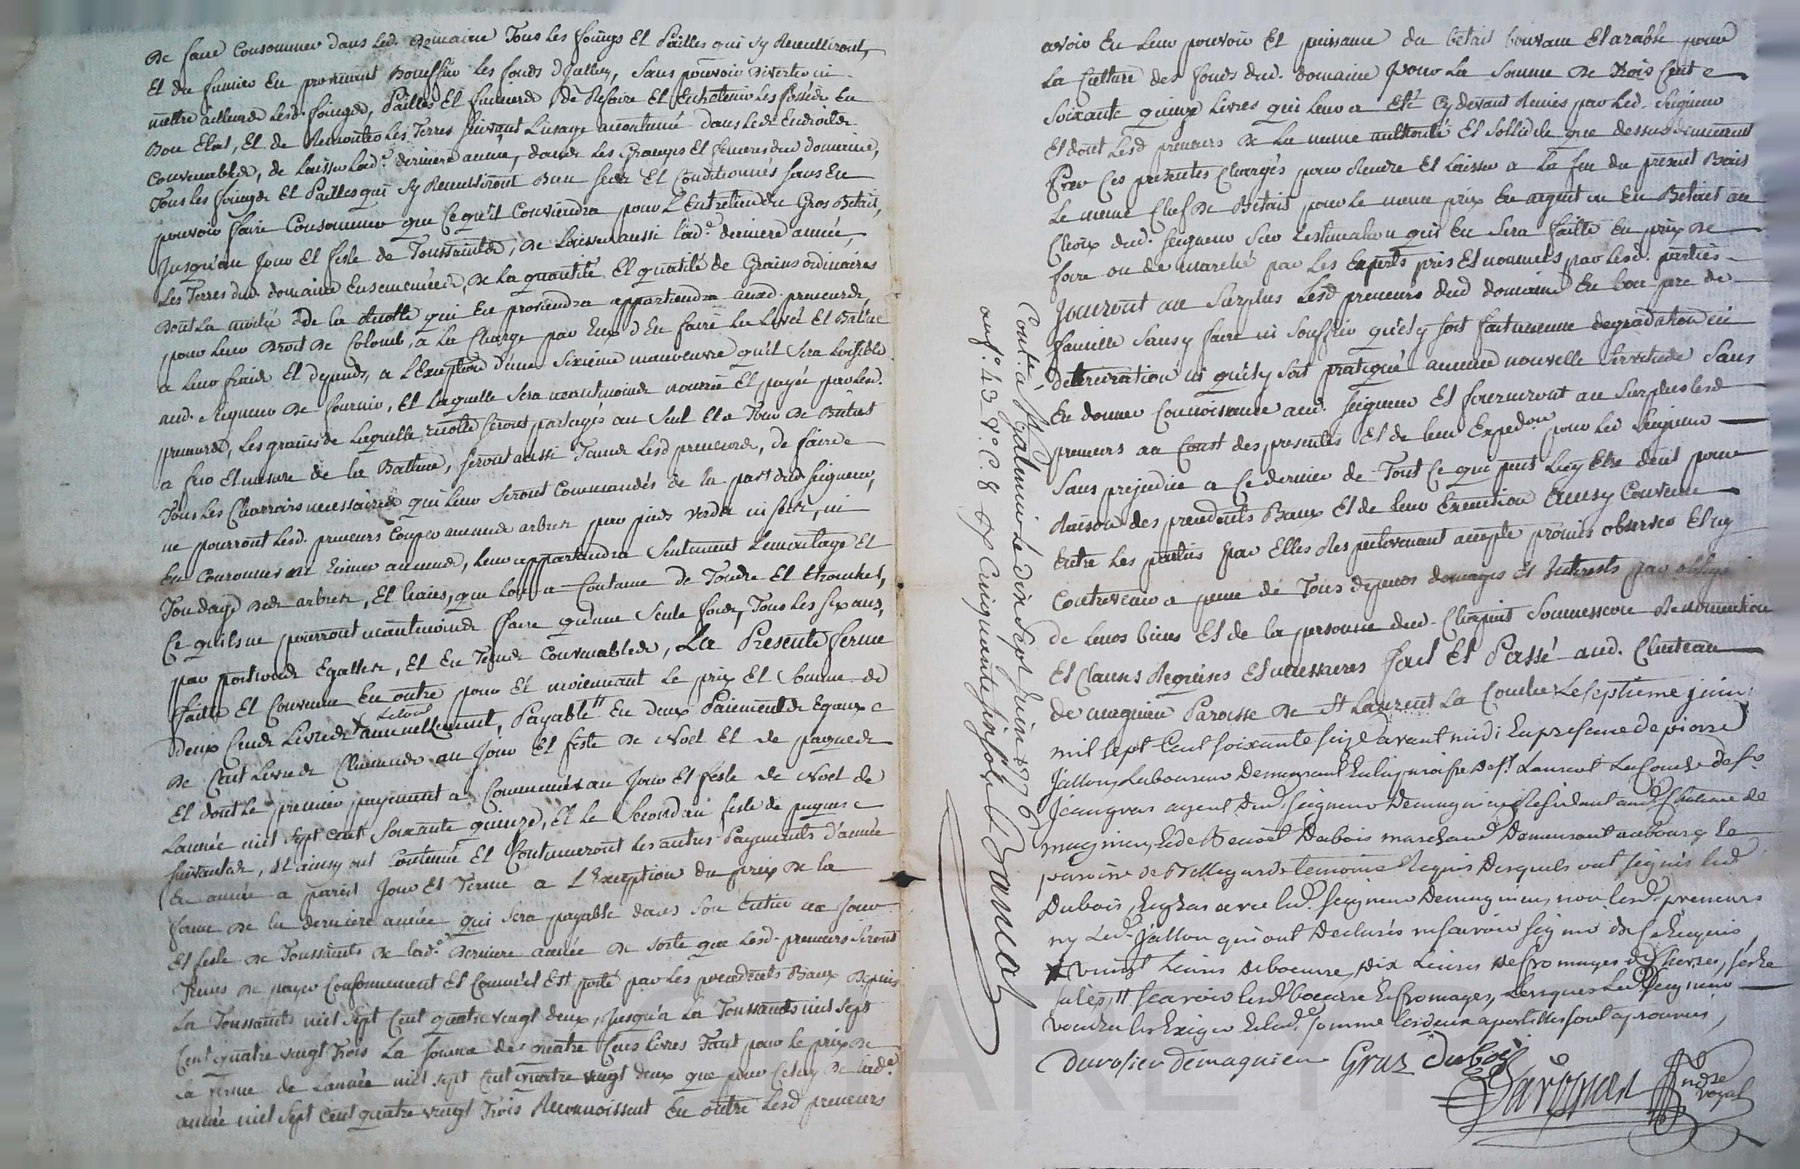 De faire Consommer dans led. Domaine Tous les foings Et Pailles qui sy Recueilliront,
Et du fumier En provenant Bonifier les fonds d'Jcelluy, sans pouvoir Divertir ni
mettre ailleurs lesd. foinge, Pailles Et fumiere De Refaire Et Entretenir les fossés En
Bon Etat, Et de les Terres suivant L'usage accoutumé dans lesd. Endroits
Convenables, de Laisser lad.e derniere année, dans les Granges Et fenieres dud domaine,
Tous les foinge Et Pailles qui sy Recueilliront Bien secs Et Conditionnés sans En
pouvoir faire Consommer que Ce qu'il Conviendra pour L'Entretien du Gros Betail,
Jusqu'au Jour Et feste de Toussaints, De Laisser aussi lad.e derniere année,
Les Terres dud. domaine Ensemencées, De la quantité Et qualité de Grains ordinaires
Dont La moitié de la Cuolte qui En proviendra appartiendra auxd. preneurs,
pour Leur Droit De Colonie, a La Charge par Eux d'En faire La Levée Et Batture
a Leur fraix Et depends, a L'Exception d'une Sixieme manoeuvre qu'il Sera Loisible
aud. Seigneur De fournir, Et Laquelle Sera neantmoins nourrie Et payée par Lesd.
preneurs, Les grains de Laquelle cuolte seront partagés au Seul Et a Tour De Batus
a fur Et mesure de la Batture, seront aussi Tenus Lesd preneurs, de faire
Tous Les Charrois necessaires qui Leur Seront Commandés de la part dud Seigneur,
ne pourront Lesd. preneurs Couper aucuns arbres par pieds verds ni secs, ni
En Couronner ni aucuns, Leur appartiendra Seulement L'emontage Et
Tondage Des arbres, Et haies, que Lon a Coutume de Tondre Et Etroncher,
Ce qu'ils ne pourront neantmoins faire qu'une Seule fois, Tous Les six ans,
par portions Egalles, Et En Tems Convenables, La Presente ferme
faitte Et Convenu En outre pour Et moiennant Le prix Et Somme de
deux Cents Livres annuellement, Payable En deux Paiements Egaux
De Cent Livres Chacun au Jour Et feste De Noel Et de paques
Et dont Le premier payement a Commencé au Jour Et feste de Noel de
Lannée mil Sept Cent Soixante quinze, Et Le Second au feste de paques
suivantes, Et ainsy ont Continué Et Continueront Les autres Payements d'année
En année a pareil Jour Et Terme a L'Exception du prix De la
ferme De la derniere année qui Sera payable dans Son Entier au Jour
Et feste De Toussaints De lad.e Derniere année De sorte que Lesd. preneurs Seront
Tenus De payer Conformement Et Comm'il Est porté par Les precedents Baux Depuis
La Toussaints mil Sept Cent quatre vingt deux, Jusqu'a La Toussaints mil Sept
Cent quatre vingt Trois La Somme de quatre Cens Livres Tant pour le prix De
La ferme de Lannée mil Sept Cent quatre vingt deux que pour Celuy De lad.e
année mil Sept Cent quatre vingt Trois Reconnoissent En outre Lesd preneurs
avoir En Leur pouvoir Et puissance du betail bouvain Et arable pour
La Culture des fonds dud. domaine pour La Somme De Trois Cent
Soixante quinze Livres qui Leur a Eté Cy devant Remis par Led. Seigneur
Et dont Lesd preneurs De La meme authorité Et Sollidité que dessus demeurent
Par Ces presentes Chargés pour Rendre Et Laisser a La fin du present Bail
Le meme Chef De Betail pour Le meme prix En argent ou En Betail au
Choix dud. Seigneur Sur L'estimation qui En Sera faitte En prix De
foire ou de marché par Les Experts pris Et nommés par Lesd. parties
Jouiront au Surplus Lesd preneurs dud domaine En bon pere de
famille Sans y faire ni Souffrir qu'il y soit fait aucune degradation ni
deterioration ni qu'il y soit pratiqué aucune nouvelle Servitude Sans
En donner Connoissance aud. Seigneur Et fourniront au Surplus Lesd
preneurs au Cout des presentes Et de leur Expedon. pour Led Seigneur
Sans prejudice a Ce dernier de Tout Ce qui peut Luy Etre deub pour
Raison des precedents Baux Et de Leur Execution Ainsy Convenu
Entre Les parties par Elles Respectivement accepté promis observer Et ny
Contrevenir a peine de Tous depens domages Et Interests par oblige
de Leurs biens Et de la personne dud. Chapuis Soumissions Renonciation
Et Clauses Requises Et necessaires fait Et Passé aud. Chateau
de magnieu Paroisse De St Laurent La Conche Le septieme juin
mil sept Cent soixante seize avant midi En presence de pierre
Jallon Laboureur Demeurant En la paroisse De St Laurent La Conche De sr
Jean gras agent Dud. Seigneur De magnieu Residant aud. Chateau de
magnieu, Et de Benoit Dubois marchand Demeurant au bourg Et
paroisse de temoins Requis Desquels ont signés led.
Dubois, Et gras avec led. Seigneur De magnieu, non Lesd. preneurs
ny Led. Jallon qui ont Declarés ne savoir signer De Ce Enquis
vingt Livres De beurre, Dix Livres De fromages De Chevres,
Scavoir lesd. beurre Et fromages, Lorsque Led. Seigneur
voudra Les Exiger Et lad.e Somme
Durosier De magnieu Gras Dubois
Contlé. à St Galmier le dix sept juin 1776
aud. f.o 43 v.o C. 8